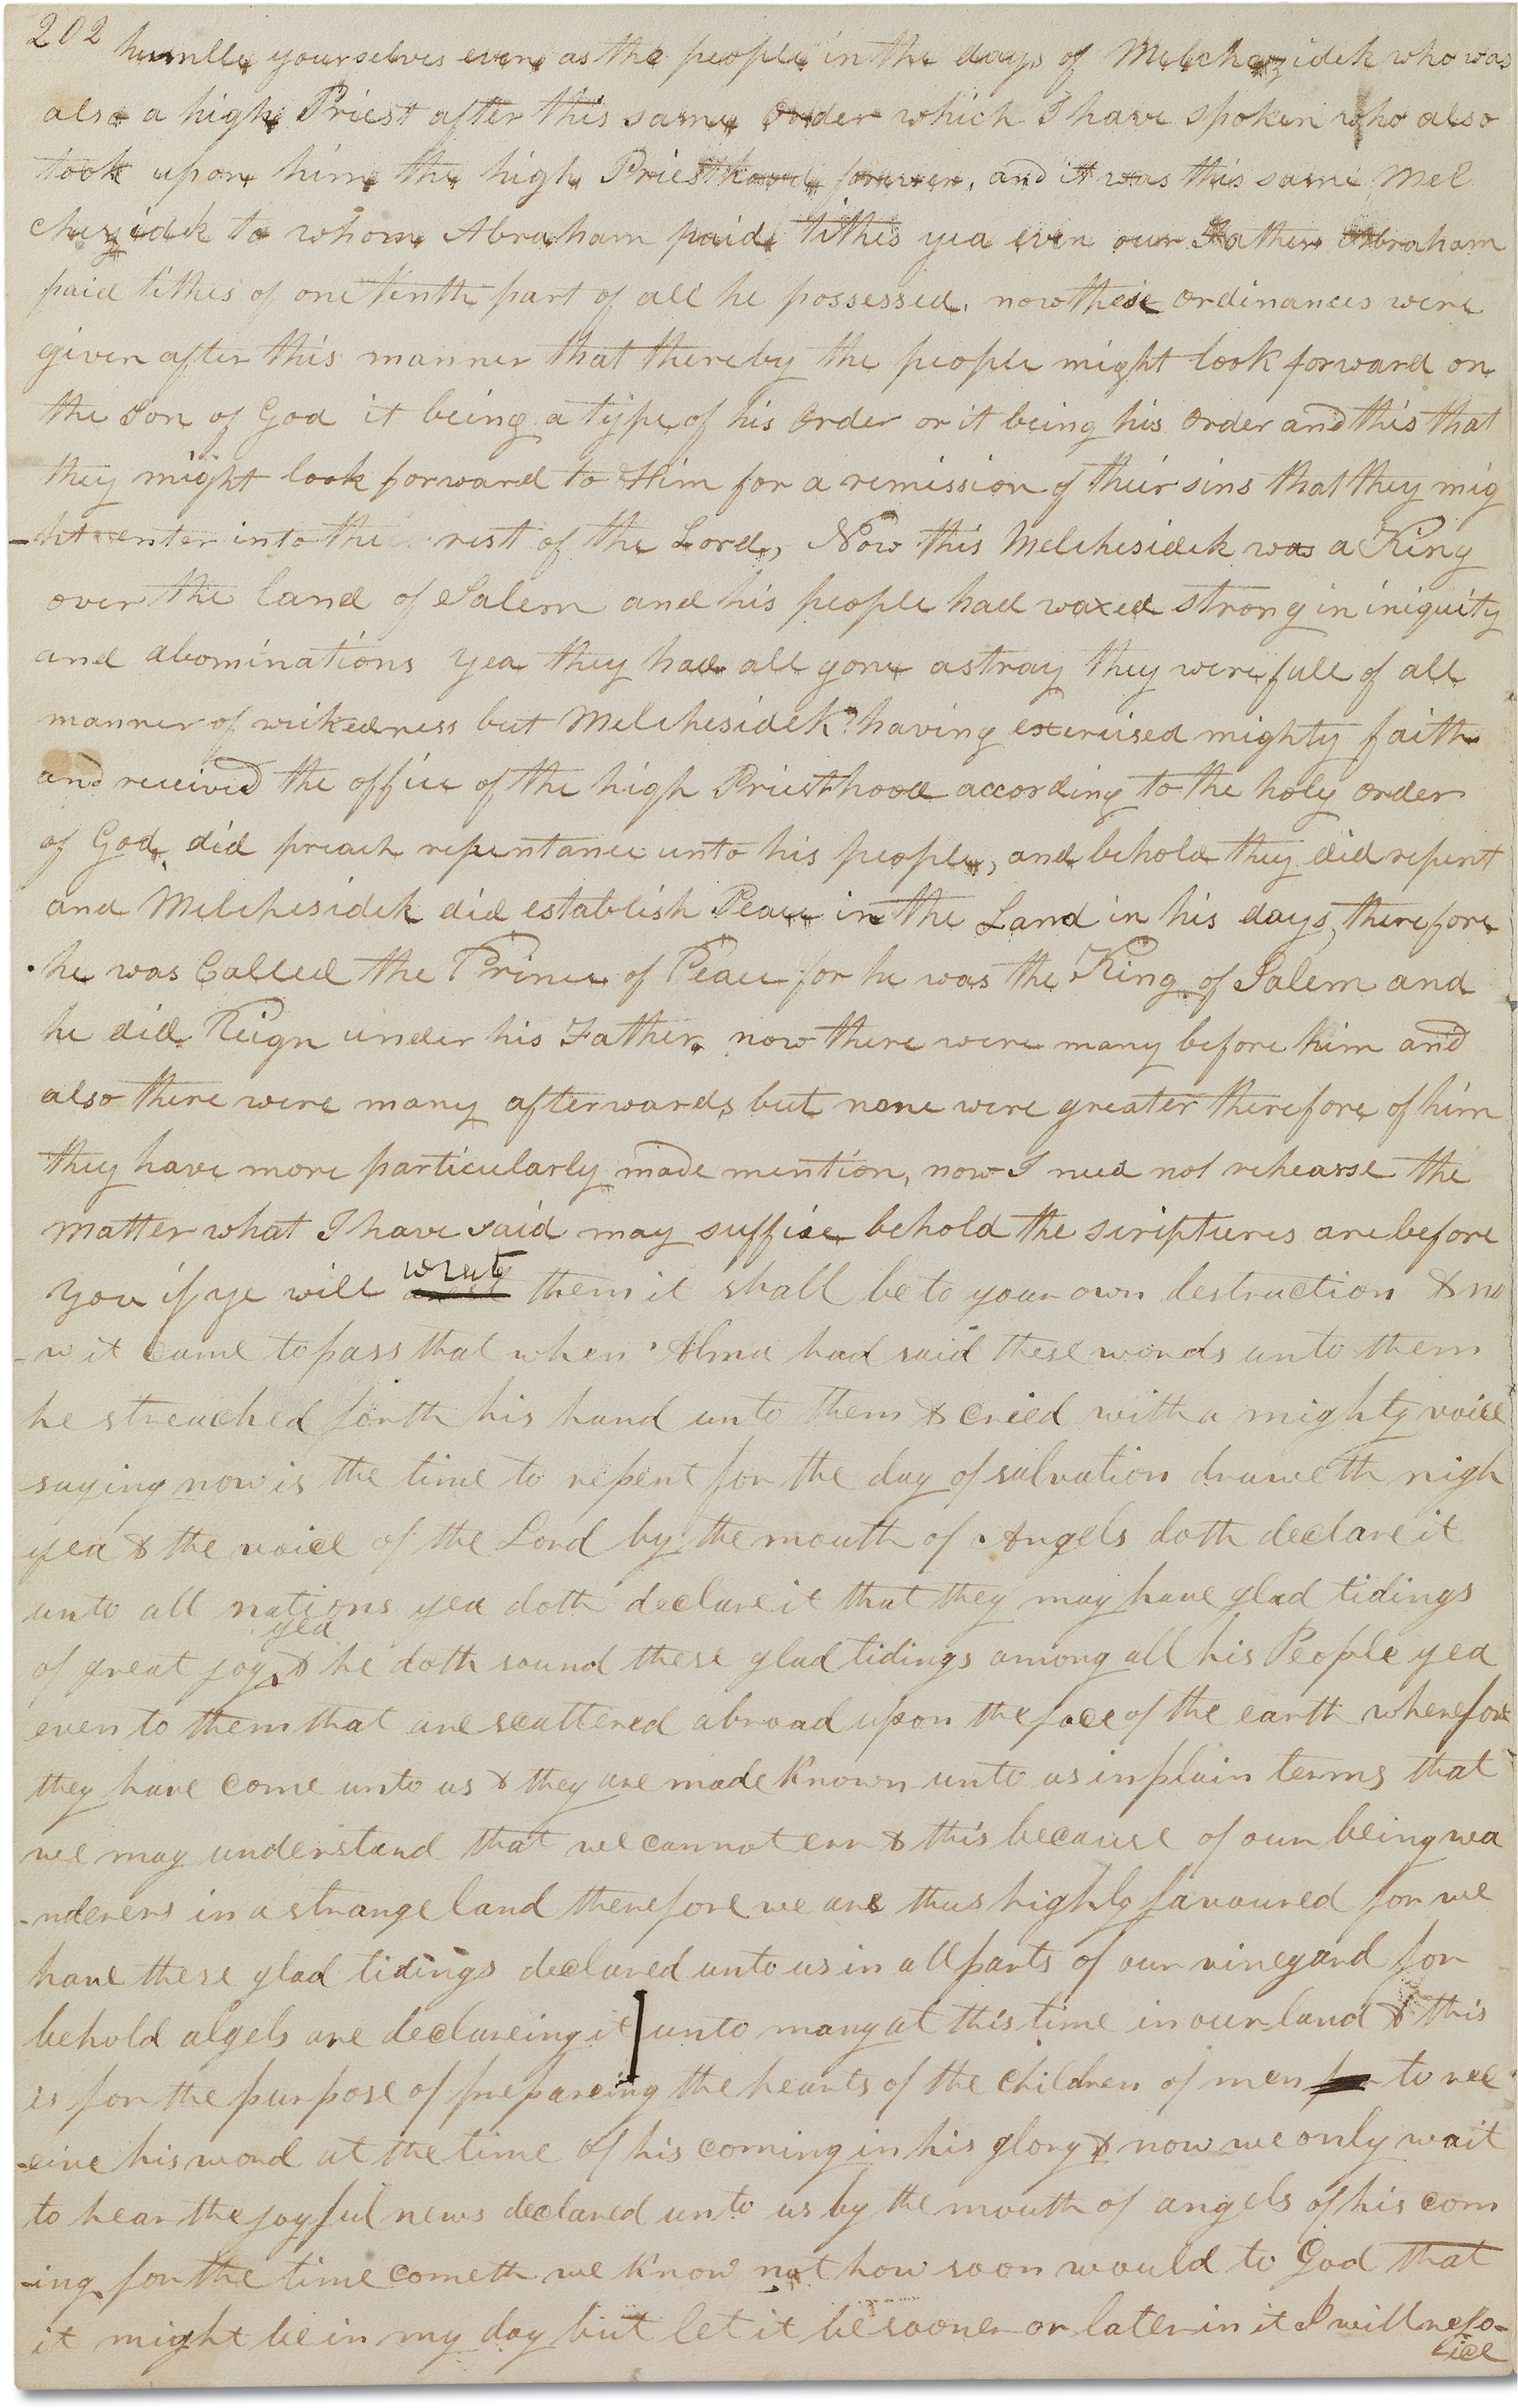 202
humble yourselves even as the people in the days of Melchezidek who was
also a high Priest after this same order which I have spoken who also
took upon him the high Priesthood forever, and it was this same Mel
chezidek to whom Abraham paid tithes yea even our Father Abraham
paid tithes of one tenth part of all he possessed, now these ordinances were
given after this manner that thereby the people might look forward on
the Son of God it being a type of his order or it being his order and this that
they might look forward to Him for a remission of their sins that they mig
-ht enter into the rest of the Lord, Now this Melchesidek was a King
over the land of Salem and his people had waxed strong in iniquity
and abominations yea they had all gone astray they were full of all
manner of wickedness but Melchesidek having exercised mighty faith
and received the office of the high Priesthood according to the holy order
of God, did preach repentance unto his people, and behold they did repent
and Melchesidek did establish Peace in the Land in his days, therefore
he was Called the Prince of Peace for he was the King of Salem and
he did Reign under his Father, now there were many before him and
also there were many afterwards but none were greater therefore of him
they have more particularly made mention, now I need not rehearse the
matter what I have said may suffise behold the scriptures are before
wrest
you if ye will them it shall be to your own destruction & no
-w it came to pass that when Alma had said these words unto them
he streached forth his hand unto them & cried with a mighty voice
saying now is the time to repent for the day of salvation draweth nigh
yea & the voice of the Lord by the mouth of Angels doth declare it
unto all nations yea doth declare it that they may have glad tidings
yea
of great joy & he doth sound these glad tidings among all his People yea
even to them that are scattered abroad upon the face of the earth wherefore
they have come unto us & they are made known unto us in plain terms that
we may understand that we cannot err & this because of our being wa
-nderers in a strange land therefore we are thus highly favoured for we
have these glad tidings declared unto us in all parts of our vineyard for
behold algels are declareing it unto many at this time in our land & this
is for the purpose of prepareing the hearts of the children of men to rec
-eive his word at the time of his coming in his glory & now we only wait
to hear the joyful news declared unto us by the mouth of angels of his com
-ing for the time cometh we know not how soon would to God that
it might be in my day but let it be sooner or later in it I will rejo-
ice